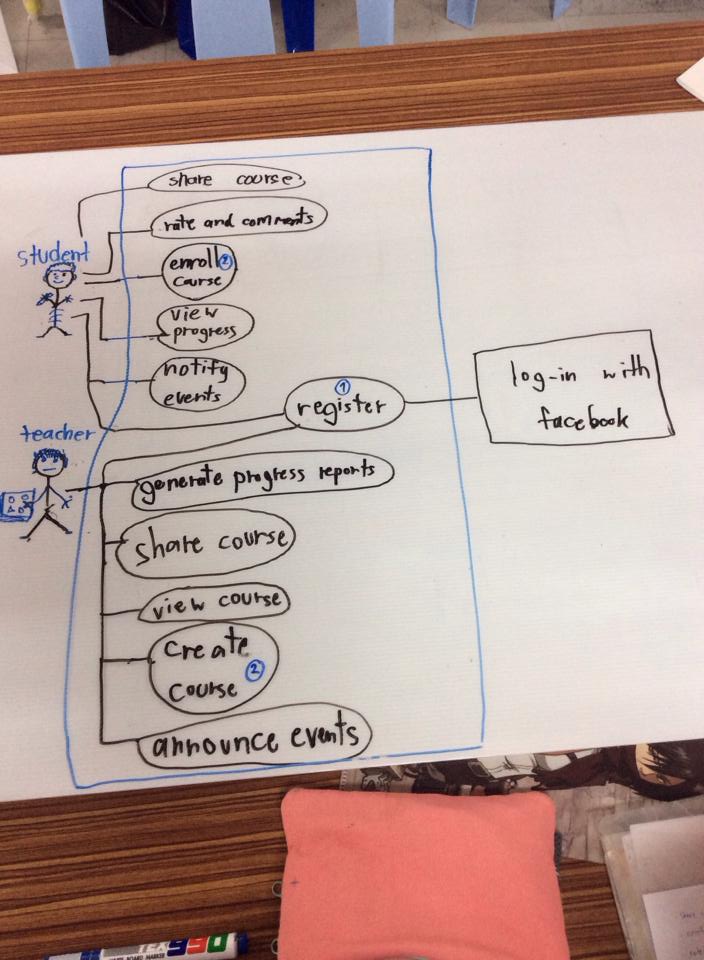 share course
rate and comments
student
enroll 2
course
view
progress
notify
events
1
register
log-in with
facebook
teacher
generate progress reports
share course
view course
create
course 2
announce events